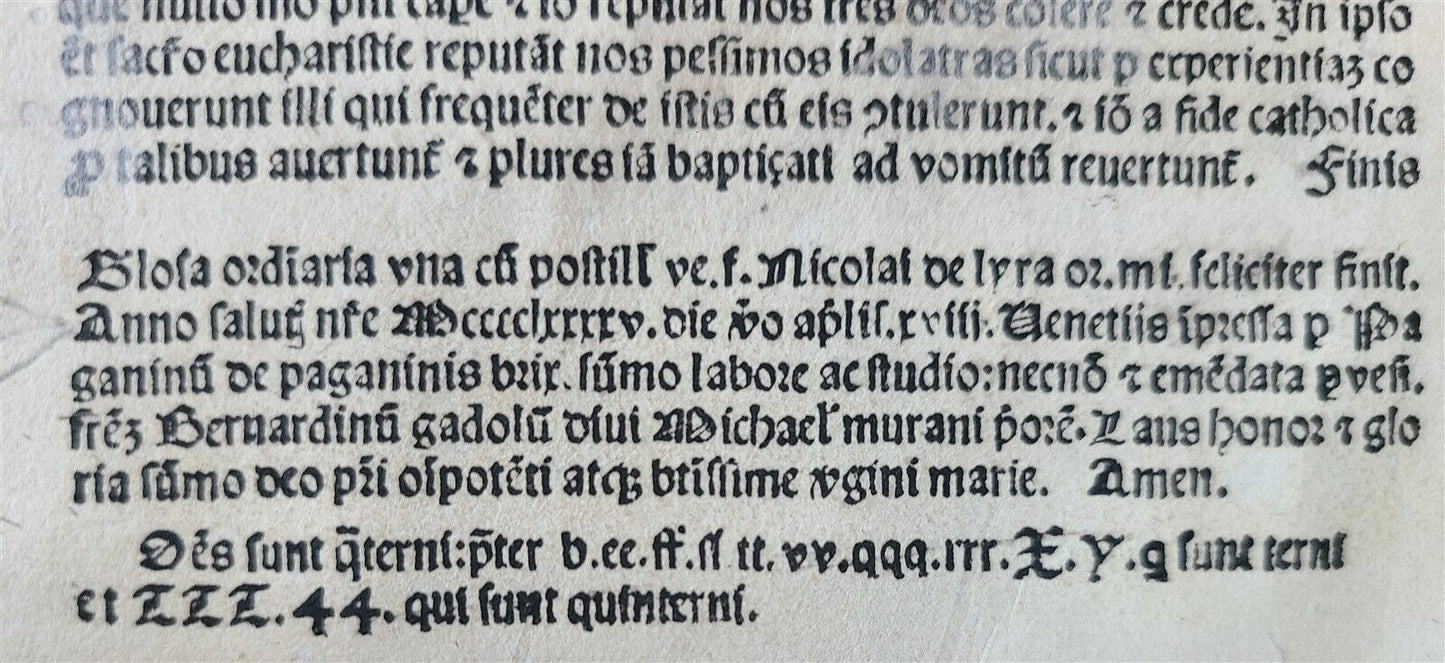 que nullo mō pn̄t cape ⁊ iō reputāt nos tres deos colere ⁊ crede. In ipso
ēt sacr̄o eucharistie reputāt nos pessimos idolatras sicut p experientiaꝫ co
gnouerunt illi qui frequēter de istis cū eis ꝯtulerunt. ⁊ iō a fide catholica
ꝑ talibus auertunt̄ ⁊ plures iā baptiçati ad vomitū reuertunt̄. Finis
Glosa ordīaria vna cū postill̄ ve. f. Nicolai de lyra or. mi. feliciter finit.
Anno salutꝭ nr̄e Mcccclxxxxv. die v̄o ap̄lis. xviii. Uenetiis īpressa p Pa
ganinū de paganinis brix. sūmo labore ac studio: necnō ⁊ emēdata ꝑ ven̄.
frēꝫ Bernardinū gadolū diui Michael̄ murani p̄orē. Laus honor ⁊ glo
ria sūmo deo pr̄i oīpotēti atqꝫ btīssime v̄gini marie. Amen.
Oēs sunt q̄terni: p̄ter b. ee. ff. ſſ tt. vv. qqq. rrr. X. Y. g sunt terni
et ZZZ. 44. qui sunt quinterni.